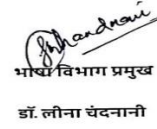 भाषा विभाग प्रमुख
डॉ. लीना चंदनानी